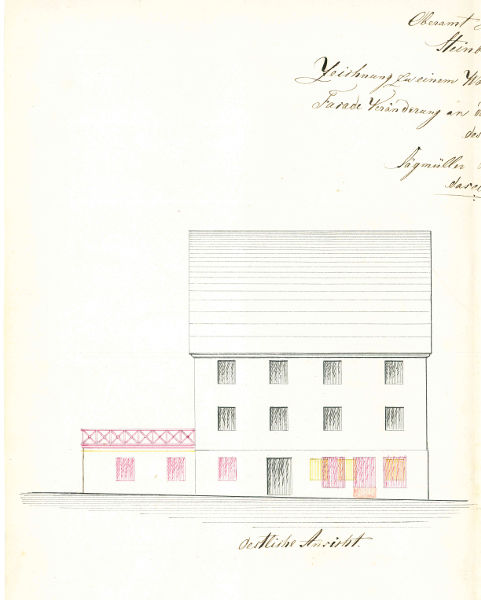 Oberamt
Steinb
Zeichnung zu einem Wo
Façade Veränderung an d
des
Sägmüller
dasel
Oestliche Ansicht.